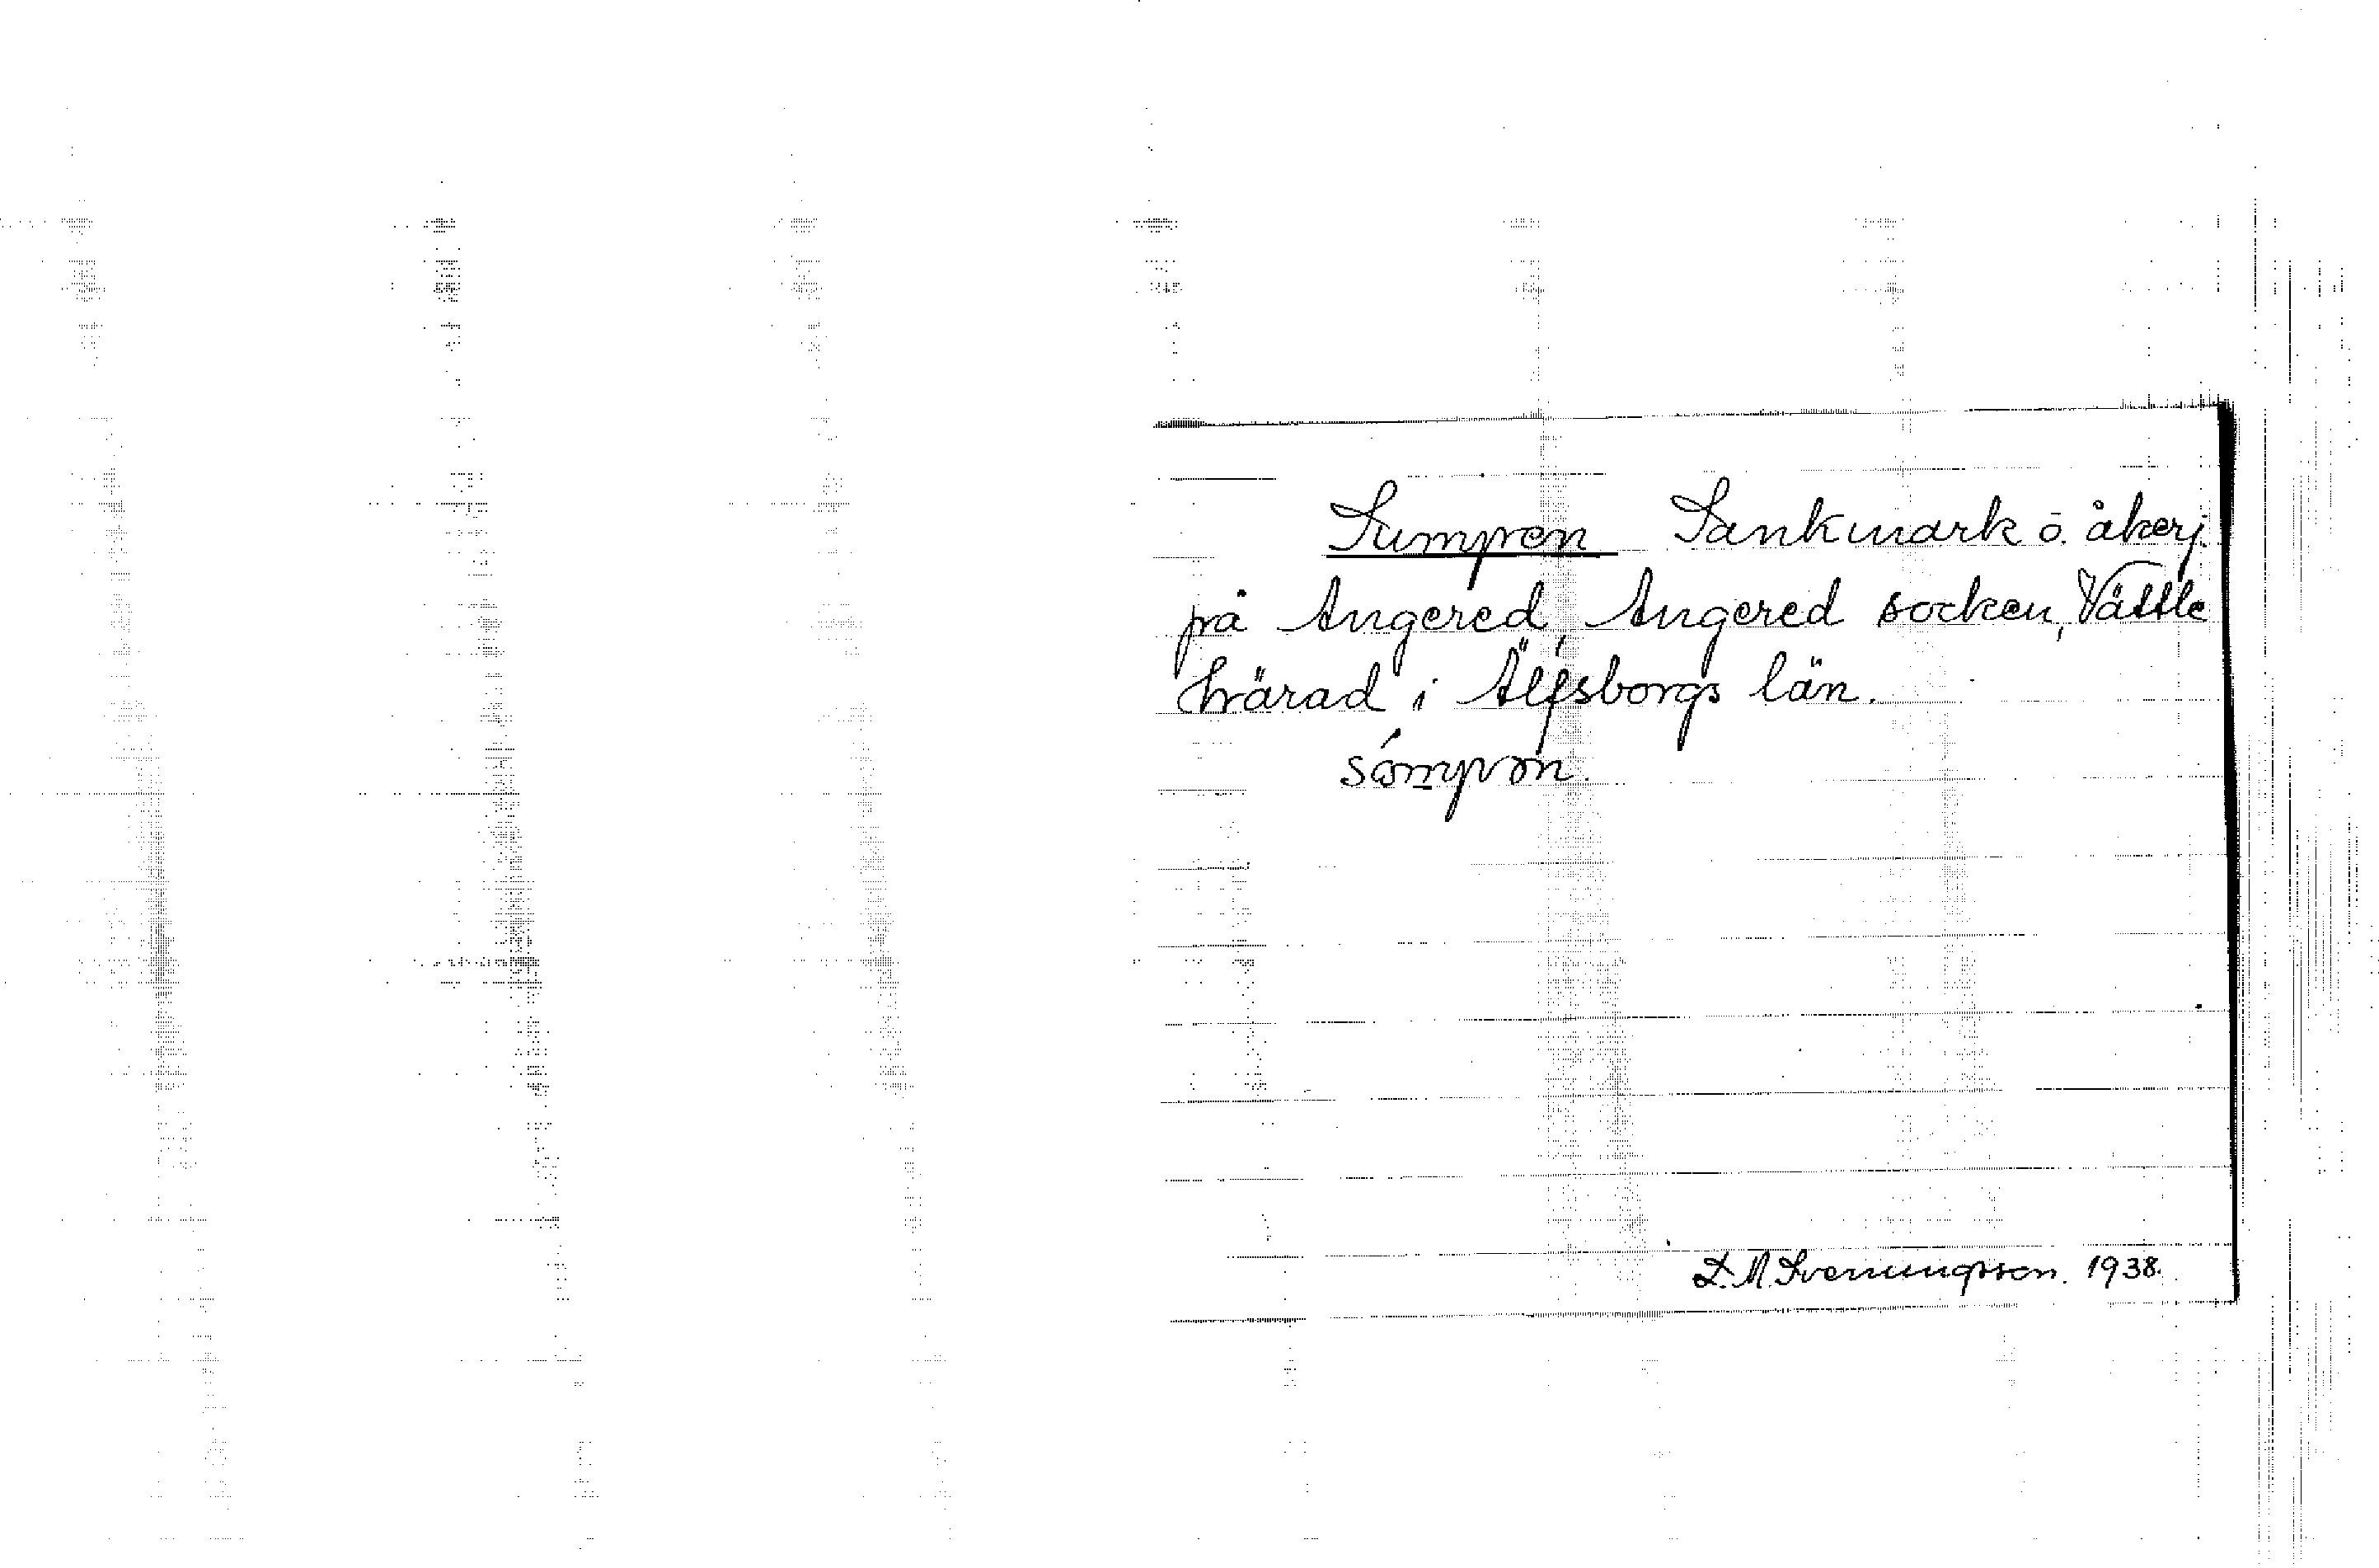 Sumpen Sankmark o. åkerj.
på Angered, Angered socken, Vättle
härad i Älfsborgs län.
sómpon.
D.A. Svenningsson. 1938.